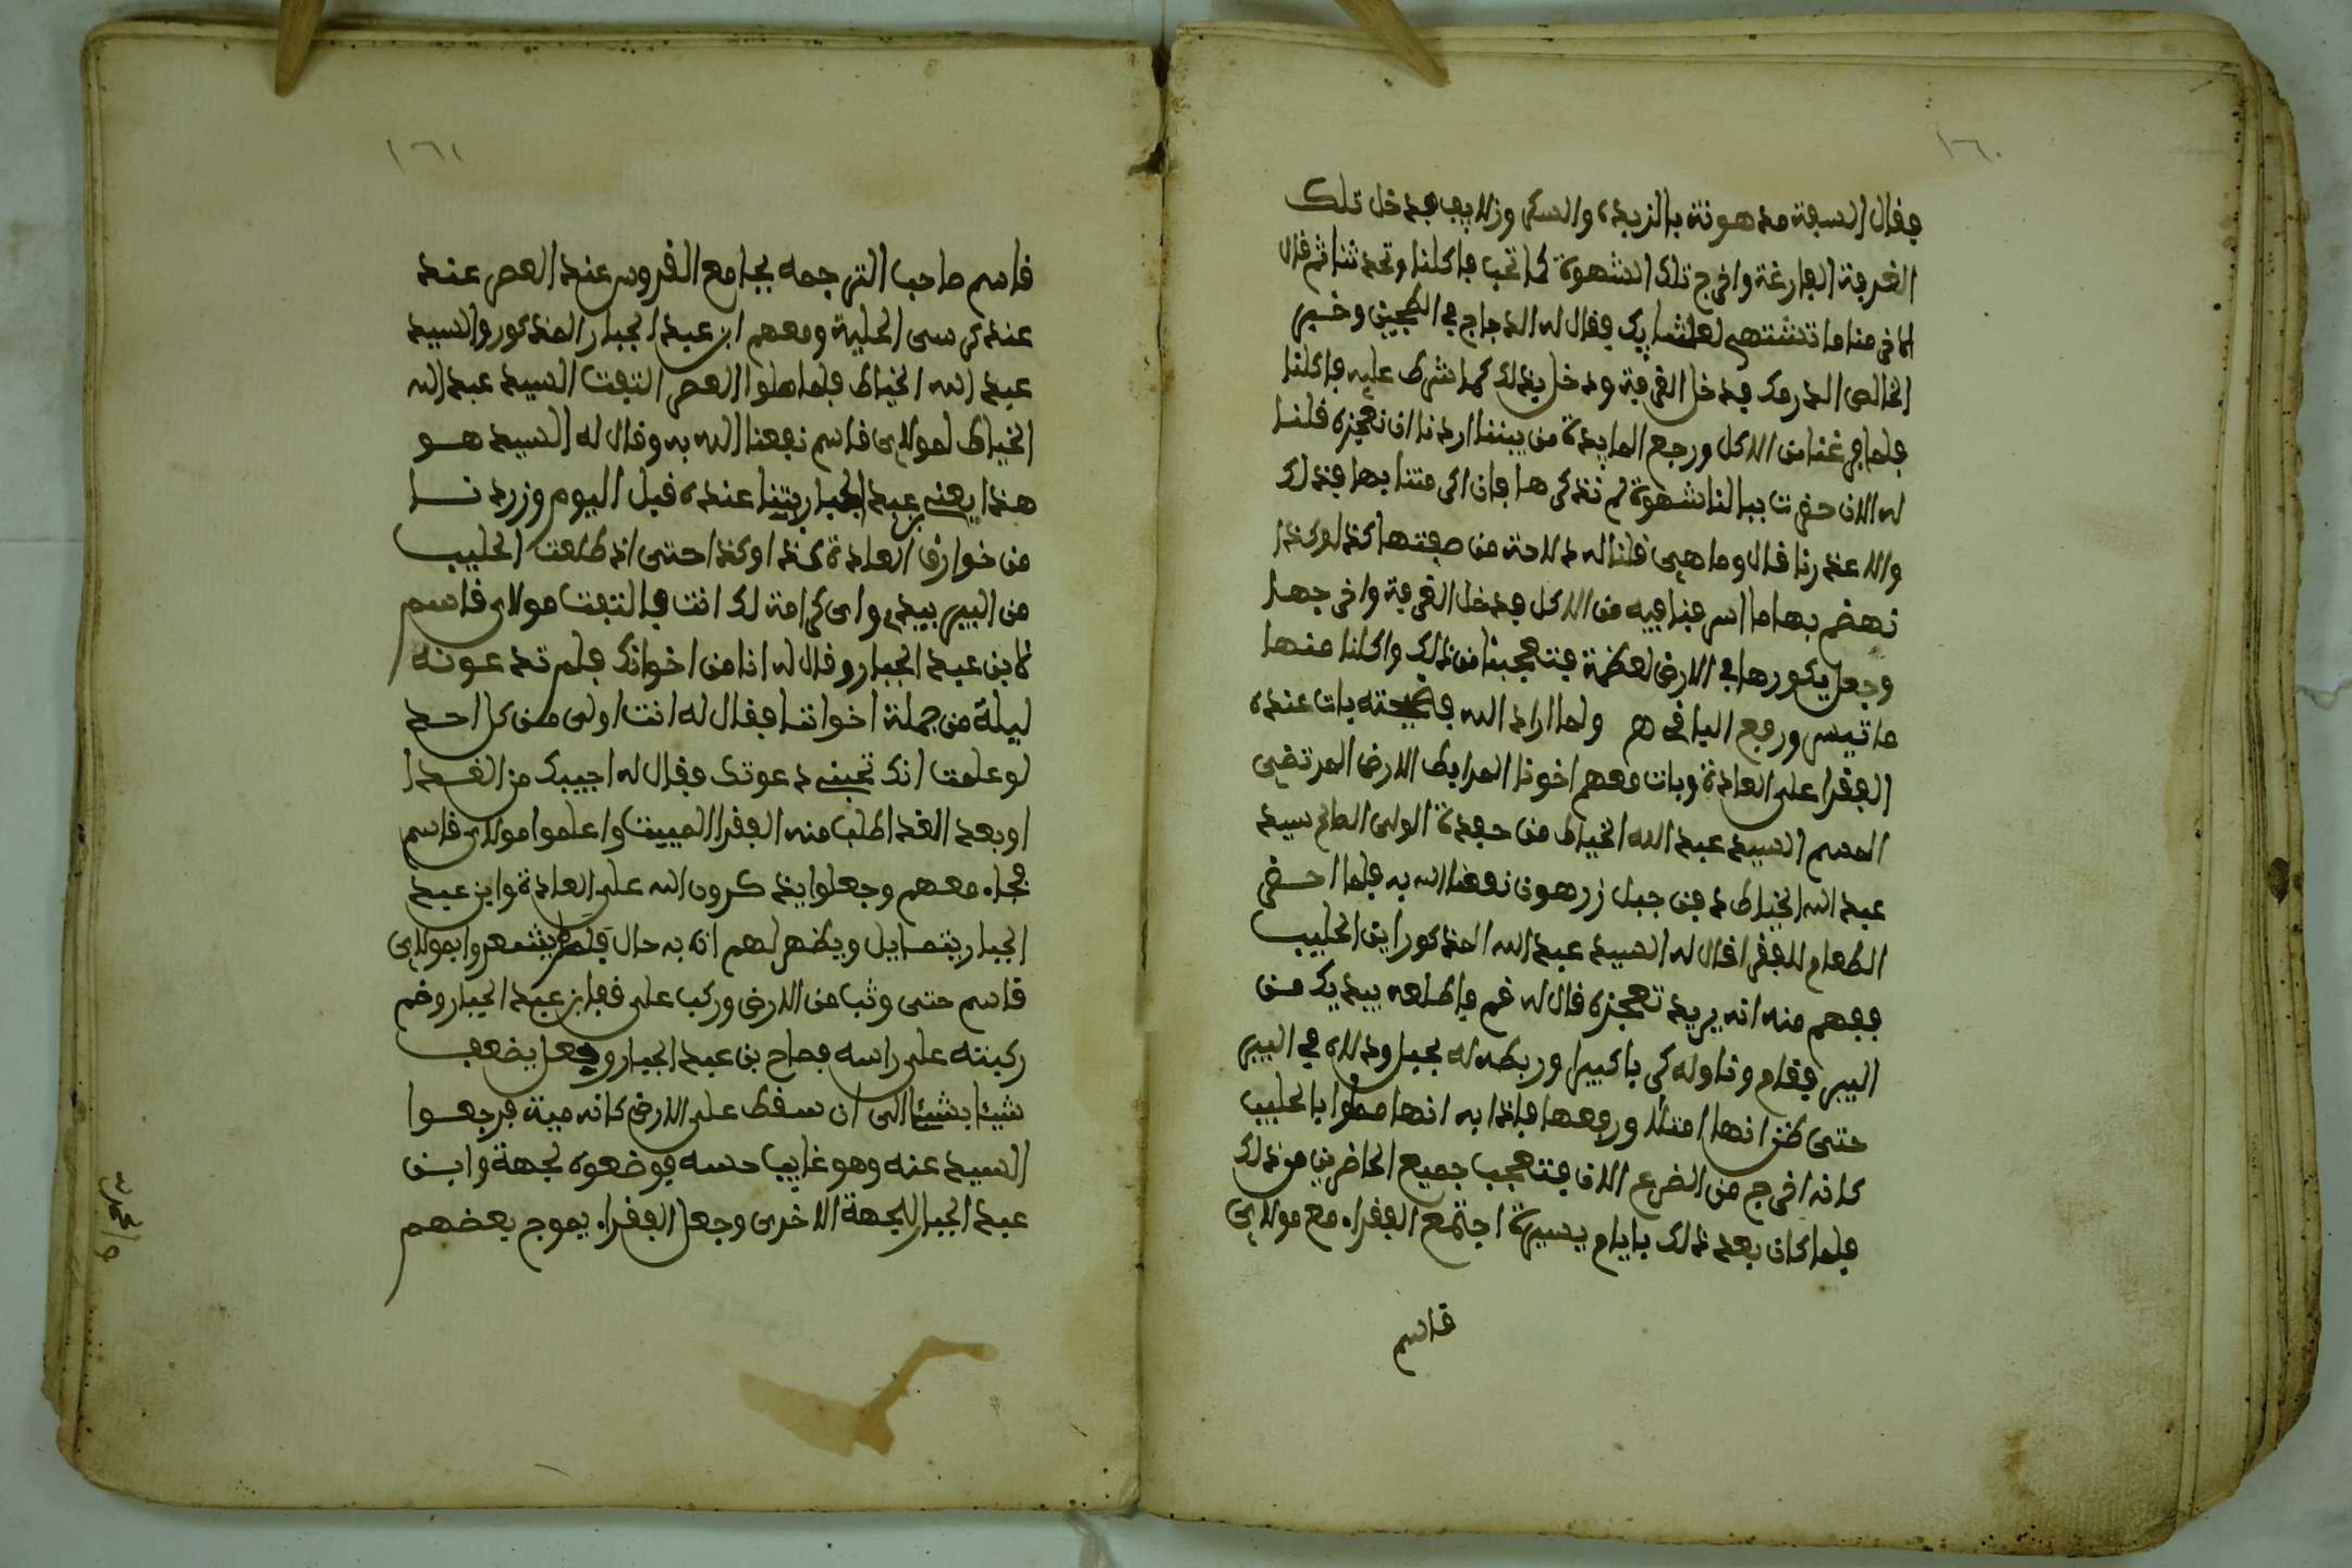 ١٦٠
فقال السفة مدهونة بالزبدة والسكر وزلايف فدخل تلك
الغرفة الفارغة واخرج تلك الشهوة كما تحب فاكلنا وتحدثنا ثم قال
لاخر منا ما تشتهي لعشايك فقال له الدجاج في الطجين وخبز
الخالص الدرمك فدخل الغرفة ودخل بذلك كما شرط عليه فاكلنا
فلما فرغنا من الاكل ورجع المايدة من بيننا اردنا ان نعجزه قلنا
له الان حضرت ببالنا شهوة لم نذكرها فان اكرمتنا بها فذلك
والا عذرنا قال وما هي قلنا له دلاحة من صفتها كذا وكذا
نهضم بها ما اسرفنا فيه من الاكل فدخل الغرفة واخرجها
وجعل يكورها في الارض لعظمة فتعجبنا من ذلك واكلنا منها
ما تيسر ورفع الباقي هـ ولما اراد الله فضيحته بات عنده
الفقرا على العادة وبات معهم اخونا المرابط الارض المرتضي
المسم السيد عبد الله الخياط من حفدة الولي الصالح سيد
عبد الله الخياط دفن جبل زرهون نفعنا الله به فلما احضر
الطعام للفقرا قال له السيد عبد الله المذكور اين الحليب
ففهم منه انه يريد تعجزه قال له قم فاطلعه بيديك من
البير فقام وناوله كربا كبيرا وربطه له بحبل ودلاه في البير
حتى ظن انها امتلا ورفعها فاذا به انها مملوا بالحليب
كانه اخرج من الضرع الان فتعجب جميع الحاضرين من ذلك
فلما كان بعد ذلك بايام يسيرة اجتمع الفقراء مع مولاي
قاسم
١٦١
قاسم صاحب الترجمه بجامع القرويين عند العصر عند
عند كرسي الحلية ومعهم ابن عبد الجبار المذكور والسيد
عبد الله الخياط فلما صلوا العصر التفت السيد عبد الله
الخياط لمولاي قاسم نفعنا الله به وقال له السيد هو
هذا يعني بن عبد الجبار بتنا عنده قبل اليوم وزردنا
من خوارق العادة كذا وكذا حتى اذ طلعت الحليب
من البير بيدي واي كرامة لك انت فالتفت مولاي قاسم
لابن عبد الجبار وقال له انا من اخوانك فلم تدعونه
ليلة من جملة اخواننا فقال له انت اولى من كل احد
لو علمت انك تجبني دعوتك فقال له اجيبك من الغد ا
او بعد الغد اطلب منه الفقرا المبيت واعلموا مولاي قاسم
فجاء معهم وجعلوا يذكرون الله على العادة وابن عبد
الجبار يتمايل ويظهر لهم انه به حال فلم يشعروا بمولاي
قاسم حتى وثب من الارض وركب على قفا بن عبد الجبار وضم
ركبته على راسه فصاح بن عبد الجبار وجعل يضعف
شيئا بشيئا الى ان سقط على الارض كانه ميتة فرجعوا
السيد عنه وهو غايب حسه فوضعوه لجهة وابن
عبد الجبار للجهة الاخرى وجعل الفقراء يموج بعضهم